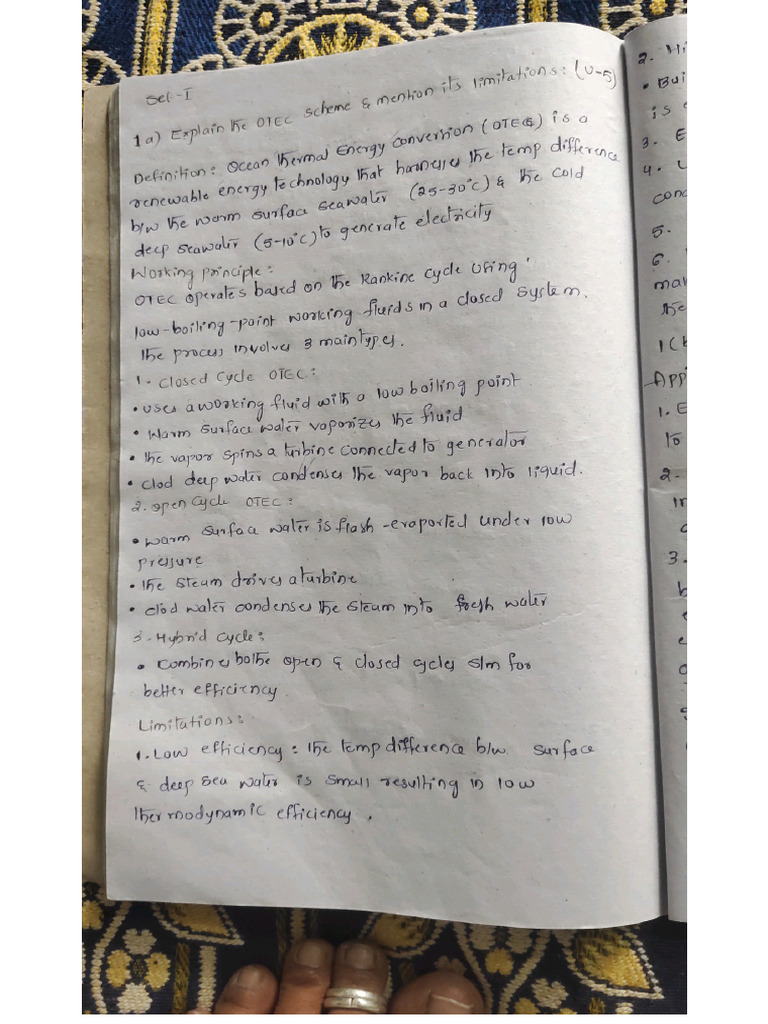 Set-I
1a) Explain the OTEC scheme & mention its limitations: (U-5)
Definition: Ocean Thermal Energy Conversion (OTEC) is a
renewable energy technology that harnesses the temp difference
b/w the warm surface seawater (25-30°C) & the cold
deep seawater (5-10°C) to generate electricity
Working principle:
OTEC operates based on the Rankine cycle using
low-boiling-point working fluids in a closed system.
the process involves 3 main types.
1. Closed Cycle OTEC:
• uses a working fluid with a low boiling point
• Warm surface water vaporizes the fluid
• the vapor spins a turbine connected to generator
• Clod deep water condenses the vapor back into liquid.
2. Open Cycle OTEC:
• Warm surface water is flash-evaported under low
pressure
• the steam drives a turbine
• Clod water condenses the steam into fresh water
3. Hybrid Cycle:
• Combines bothe open & closed cycles s/m for
better efficiency
Limitations:
1. Low efficiency: the temp difference b/w surface
& deep sea water is small resulting in low
thermodynamic efficiency.
2. Hi
• Bui
is
3. E
4.
conc
5.
6.
mar
the
1(b
App
1. E
to
2.
in
3.